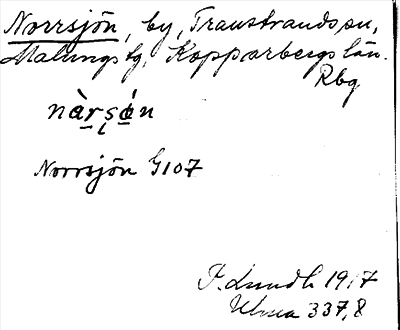 Norrsjön, by, Transtrands sn,
Malungs tg, Kopparbergs län.
Rbg
nàrsón
Norrsjön G107
J. Lundh 1917
Ulma 337,8